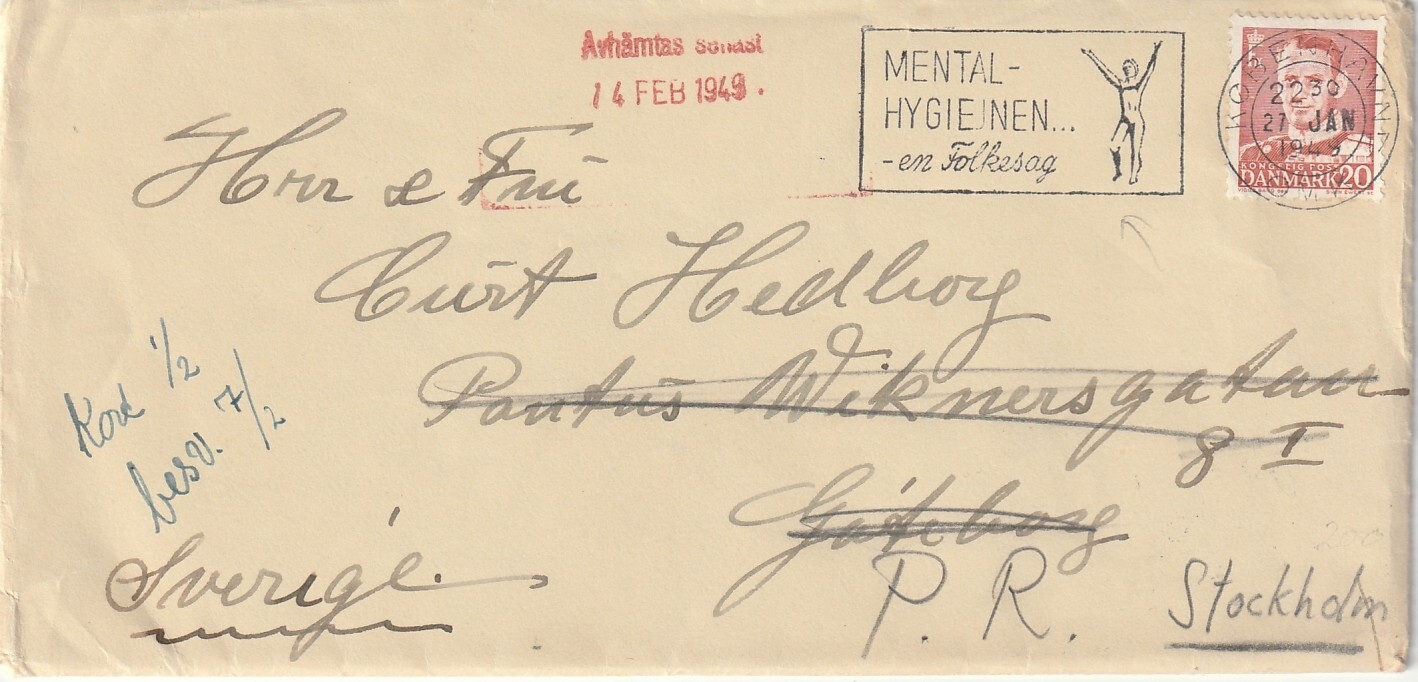 Avhämtas senast
14 FEB 1949.
MENTAL-
HYGIEJNEN...
-en Folkesag
KØBENHAVN
2230
27 JAN
1949
KONGELIG POST
DANMARK 20
Herr & Fru
Curt Hedborg
Pontus Wiknersgatan
8 I
Göteborg
P. R. Stockholm
Sverige.
Kord 1/2
besv. 7/2